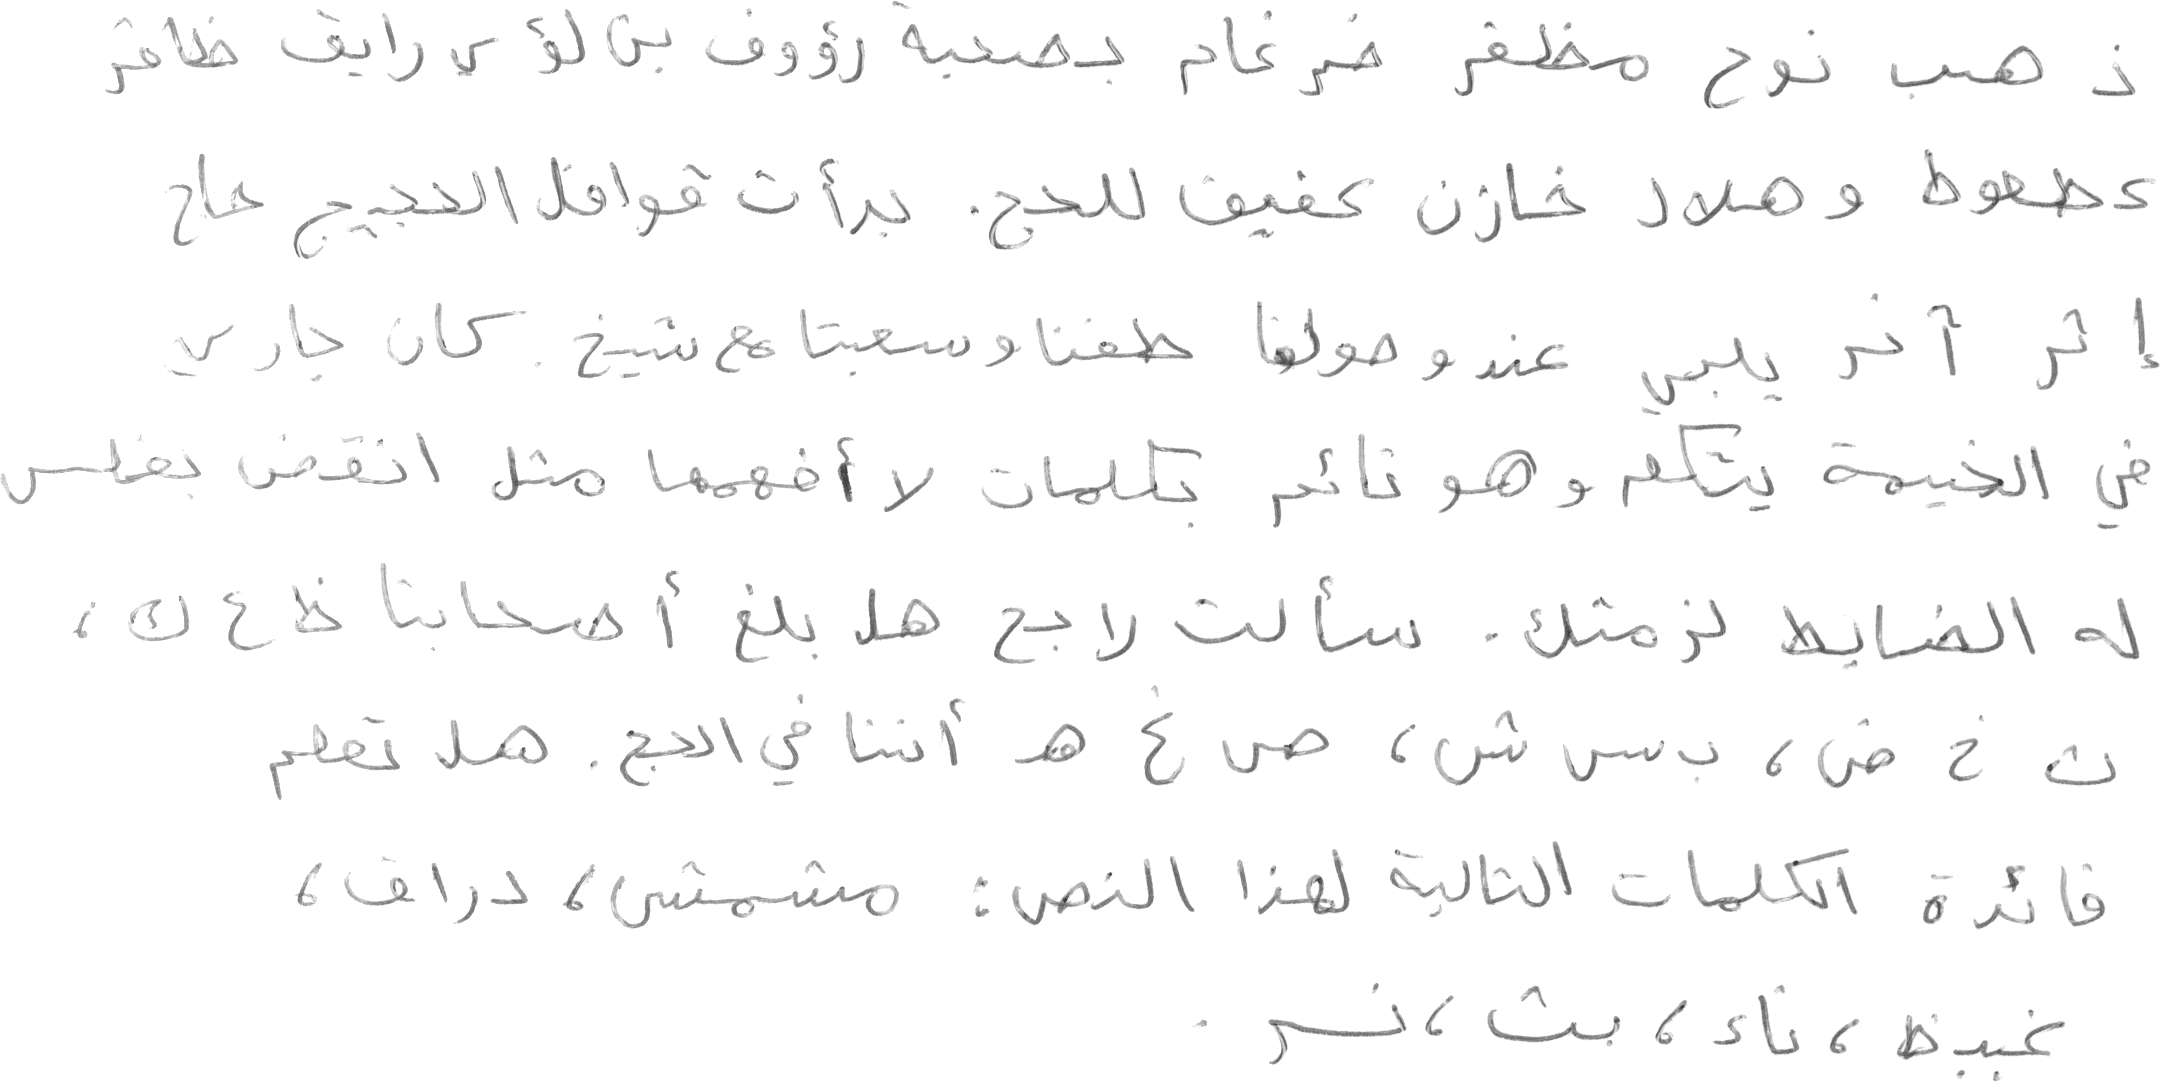 ذهب نوح مظفر ضرغام بصحبة رؤوف بن لؤي رايق ظافر
عطعوط وهلال خازن عفيف للحج. بدأت قوافل الحجيج حاج
إثر آخر يلبي عند وصولنا طفنا وسعينا مع شيخ. كان جاري
في الخيمة يتكلم وهو نائم بكلمات لا أفهمها مثل انقض بغلس
له الضابط لزمتك. سألت لاجح هل بلغ أصحابنا ظ ع ك،
ث خ ض، ب س ش، ص غ هـ أننا في الحج. هل تعلم
فائدة الكلمات التالية لهذا النص: مشمش، دراق،
غيظ، ناء، بث، نسر.